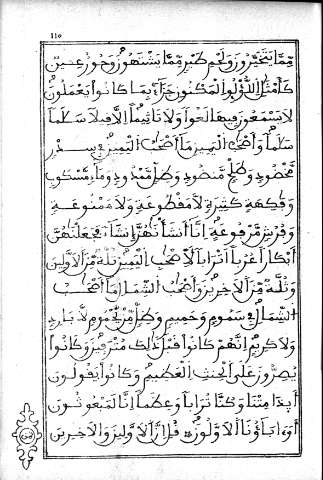 ١١٥
مِّمَّا يَتَخَيَّرُونَ وَلَحْمِ طَيْرٍ مِّمَّا يَشْتَهُونَ وَحُورٌ عِينٌ
كَأَمْثَٰلِ اللُّؤْلُوِٕ الْمَكْنُونِ جَزَآءً بِمَا كَانُوا يَعْمَلُونَ
لَا يَسْمَعُونَ فِيهَا لَغْوًا وَلَا تَاثِيمًا اِلَّا قِيلًا سَلَٰمًا
سَلَٰمًا وَأَصْحَٰبُ الْيَمِينِ مَا أَصْحَٰبُ الْيَمِينِ فِي سِدْرٍ
مَّخْضُودٍ وَطَلْحٍ مَّنضُودٍ وَظِلٍّ مَّمْدُودٍ وَمَآءٍ مَّسْكُوبٍ
وَفَٰكِهَةٍ كَثِيرَةٍ لَّا مَقْطُوعَةٍ وَلَا مَمْنُوعَةٍ
وَفُرُشٍ مَّرْفُوعَةٍ اِنَّا أَنشَأْنَٰهُنَّ إِنشَآءً فَجَعَلْنَٰهُنَّ
أَبْكَارًا عُرُبًا أَتْرَابًا لِّأَصْحَٰبِ الْيَمِينِ ثُلَّةٌ مِّنَ الَاوَّلِينَ
وَثُلَّةٌ مِّنَ الَاخِرِينَ وَأَصْحَٰبُ الشِّمَالِ مَا أَصْحَٰبُ
الشِّمَالِ فِي سَمُومٍ وَحَمِيمٍ وَظِلٍّ مِّنْ يَحْمُومٍ لَّا بَارِدٍ
وَلَا كَرِيمٍ اِنَّهُمْ كَانُوا قَبْلَ ذَٰلِكَ مُتْرَفِينَ وَكَانُوا
يُصِرُّونَ عَلَى الْحِنثِ الْعَظِيمِ وَكَانُوا يَقُولُونَ
أَيِذَا مِتْنَا وَكُنَّا تُرَابًا وَعِظَٰمًا اِنَّا لَمَبْعُوثُونَ
أَوَءَابَآؤُنَا الَاوَّلُونَ قُلِ اِنَّ الَاوَّلِينَ وَالَاخِرِينَ